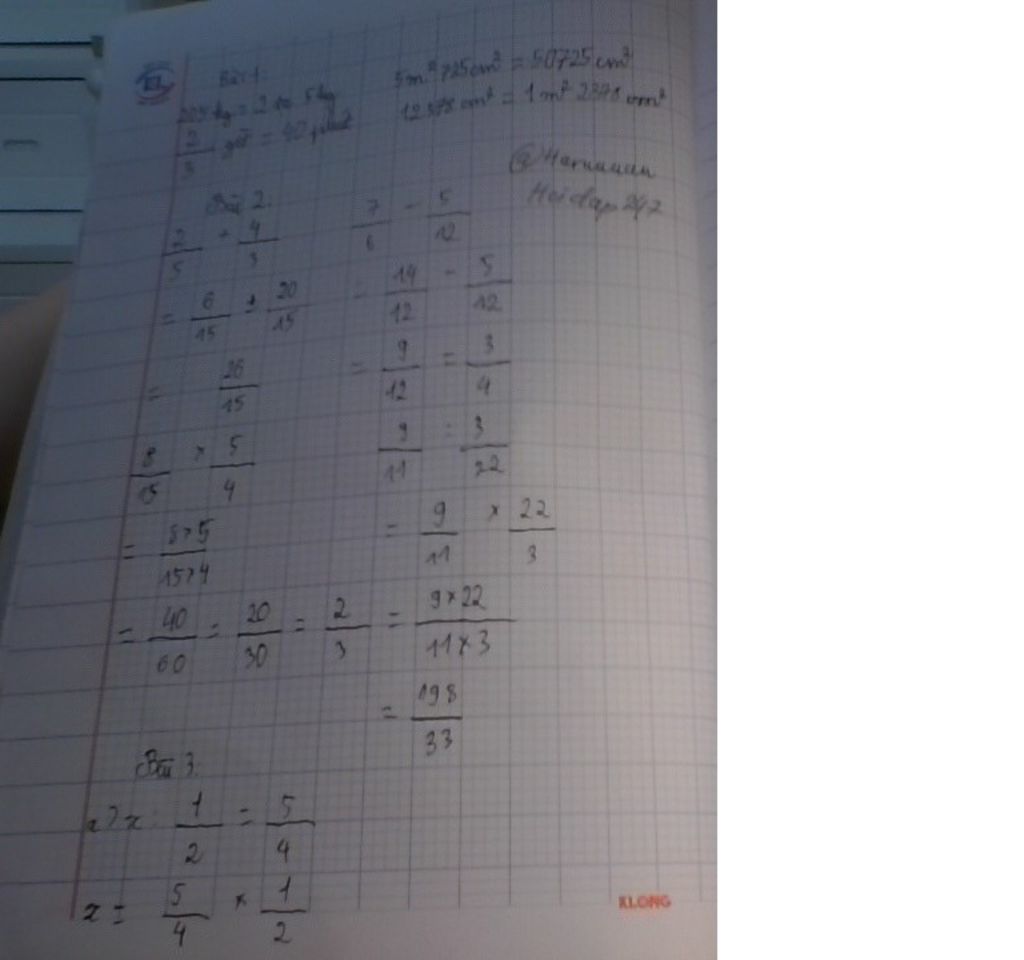 Bài 1:
205 kg = 2 tạ 5 kg
2/3 giờ = 40 phút
5m² 725cm² = 50725 cm²
12378 cm² = 1 m² 2378 cm²
@Haruuuuu
Hoidap247
Bài 2:
2/5 + 4/3
= 6/15 + 20/15
= 26/15
7/6 - 5/12
= 14/12 - 5/12
= 9/12 = 3/4
8/15 × 5/4
= 8×5/15×4
= 40/60 = 20/30 = 2/3
9/11 : 3/22
= 9/11 × 22/3
= 9×22/11×3
= 198/33
Bài 3:
a) x : 1/2 = 5/4
x = 5/4 × 1/2
KLONG